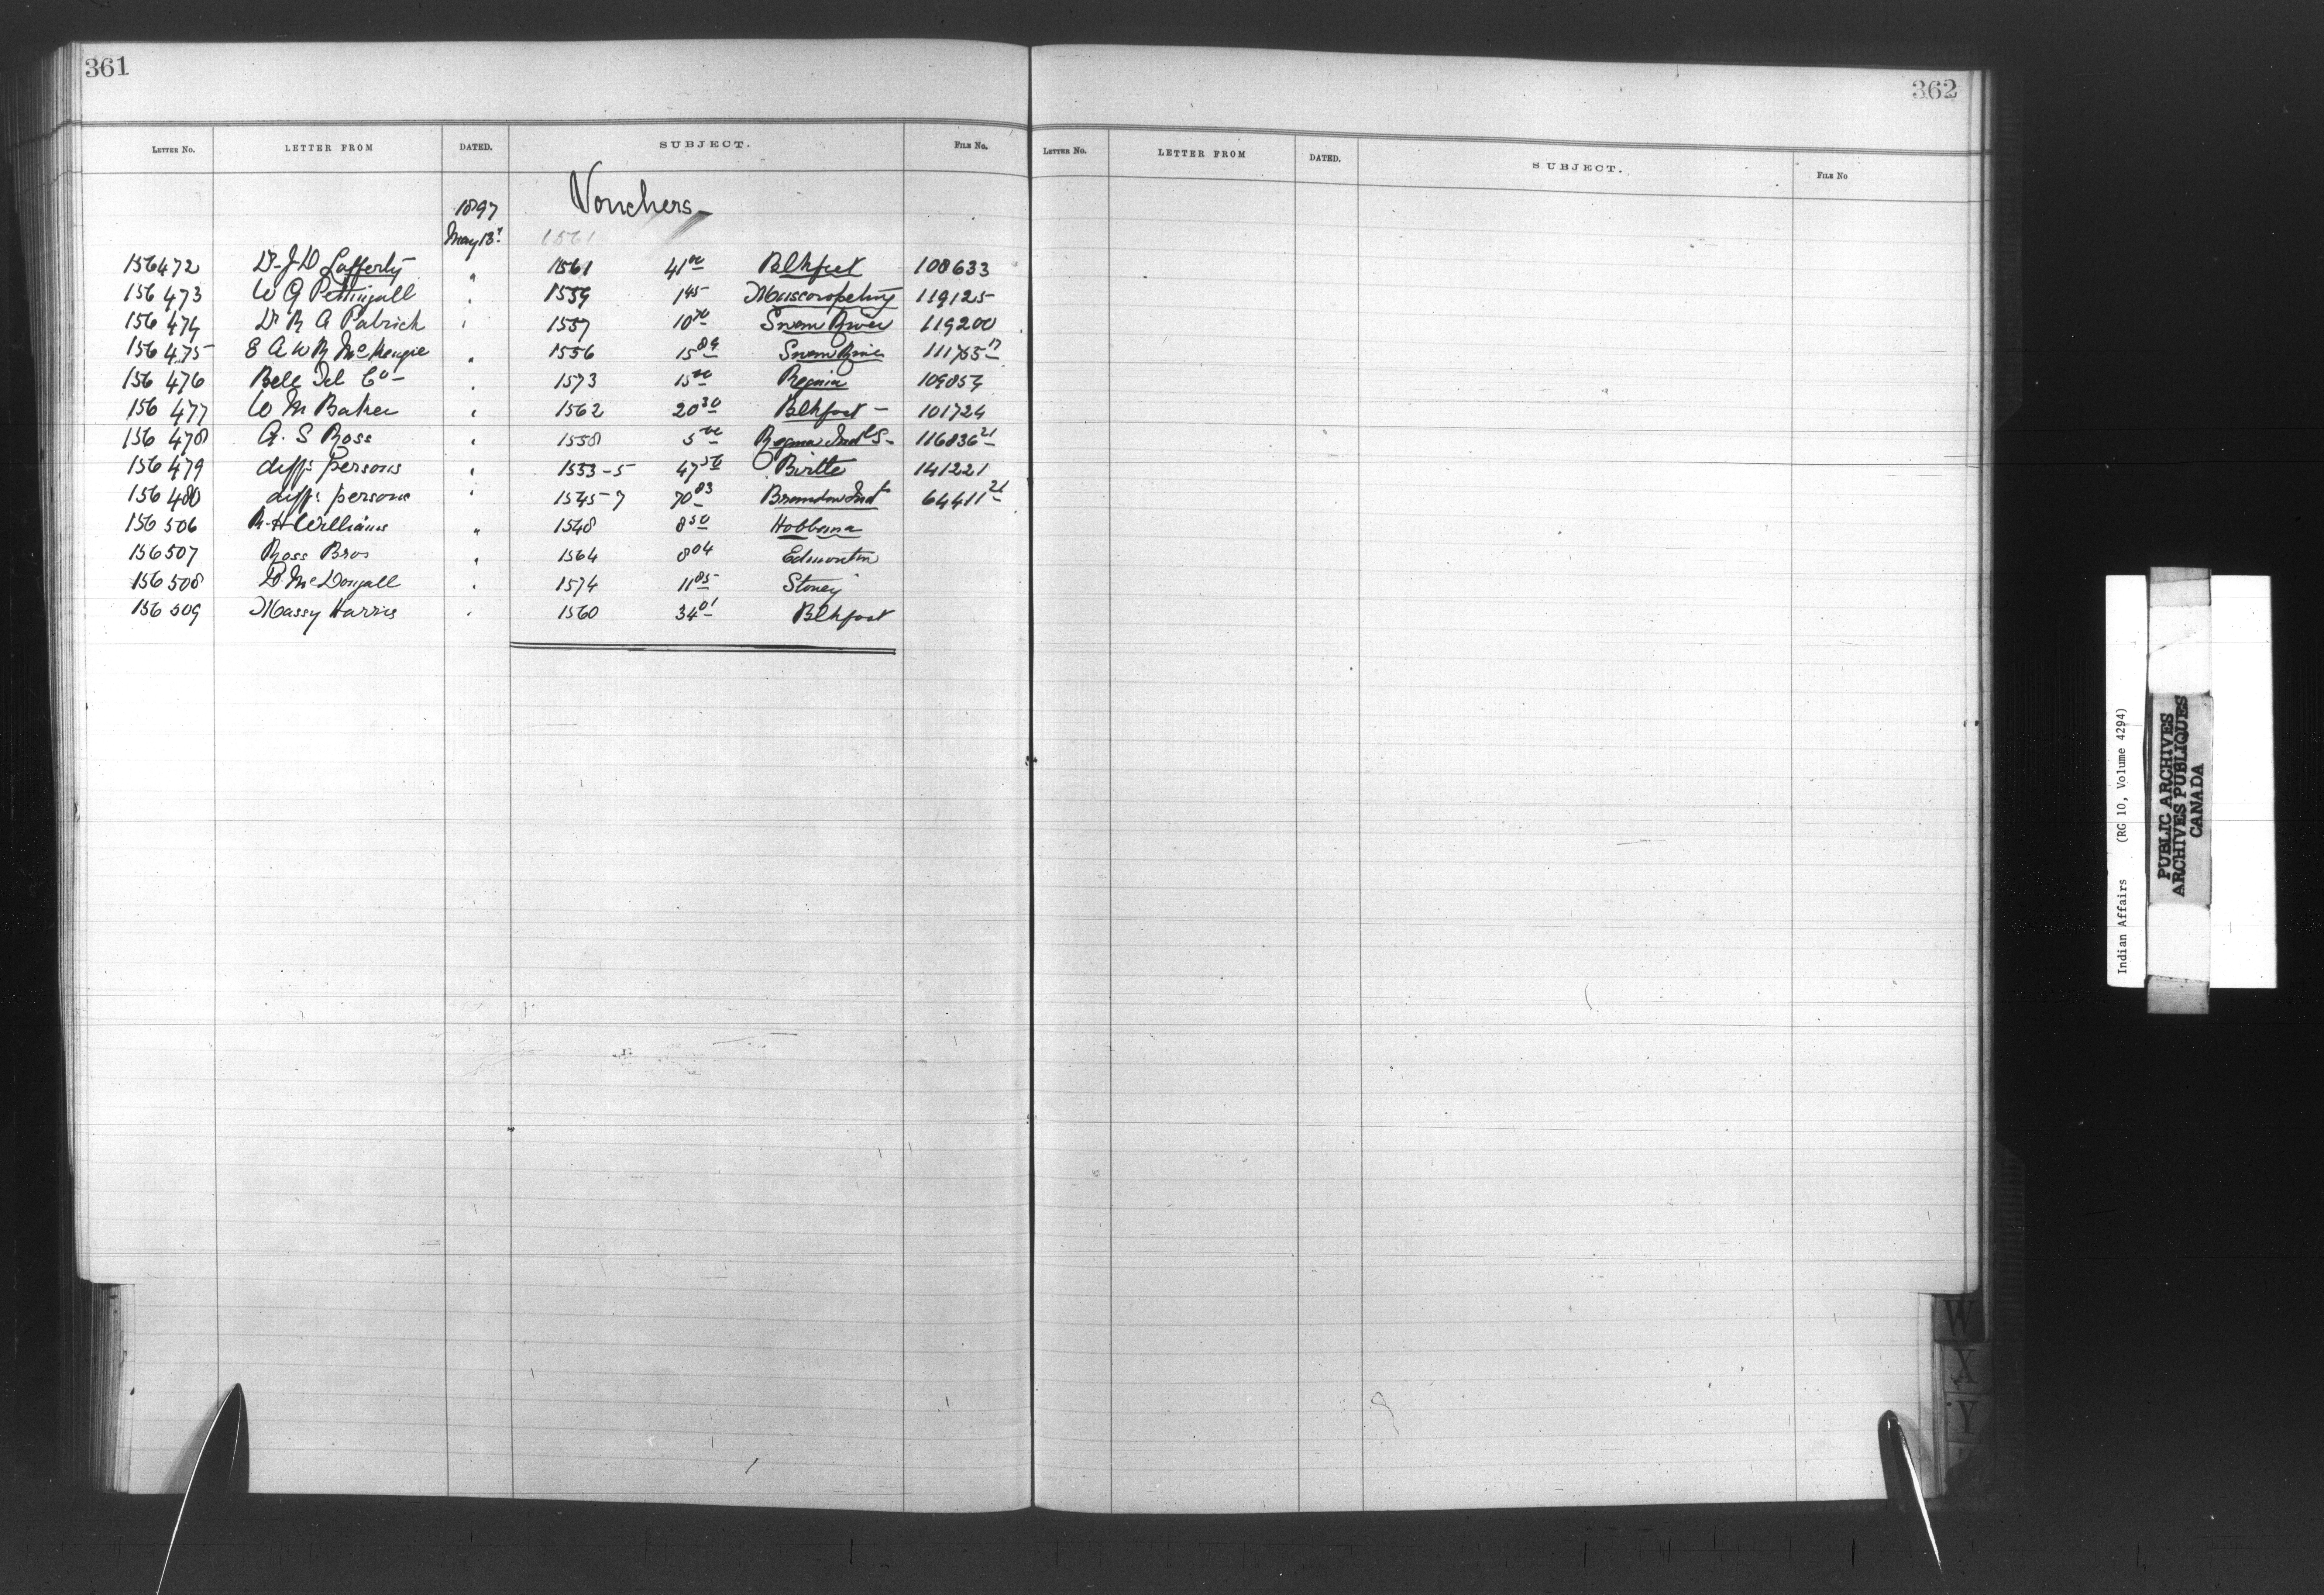 361
LETTER NO. LETTER FROM DATED. SUBJECT. FILE NO.
Vouchers
1897
May 13" 1561
156472 Dr J D Lafferty " 1561 41 00 Blkfeet 108633
156 473 W G Pettingall " 1559 1 45 Muscowpetung 119125
156 474 Dr R A Patrick " 1557 10 70 Swan River 119200
156 475 E A W R McKenzie " 1556 15 89 Swan River 17
156 476 Bell Tel Co " 1573 15 00 Regina 109854
156 477 W M Baker " 1562 20 30 Blkfoot - 101724
156 478 A. S Ross " 1558 5 00 Regina Indl S- 116836 21
156 479 difft persons " 1553-5 47 50 Birtle 141221
156 480 difft persons " 1545-7 70 83 Brandon Inst 64411 21
156 506 R. H Williams " 1548 8 50 Hobbema
156507 Ross Bros " 1564 8 04 Edmonton
156 508 D McDougall " 1574 11 85 Stoney
156 509 Massy Harris " 1560 34 01 Blkfoot
362
LETTER NO. LETTER FROM DATED. SUBJECT. FILE NO
W
X
Y
Indian Affairs (RG 10, Volume 4294)
PUBLIC ARCHIVES
ARCHIVES PUBLIQUES
CANADA